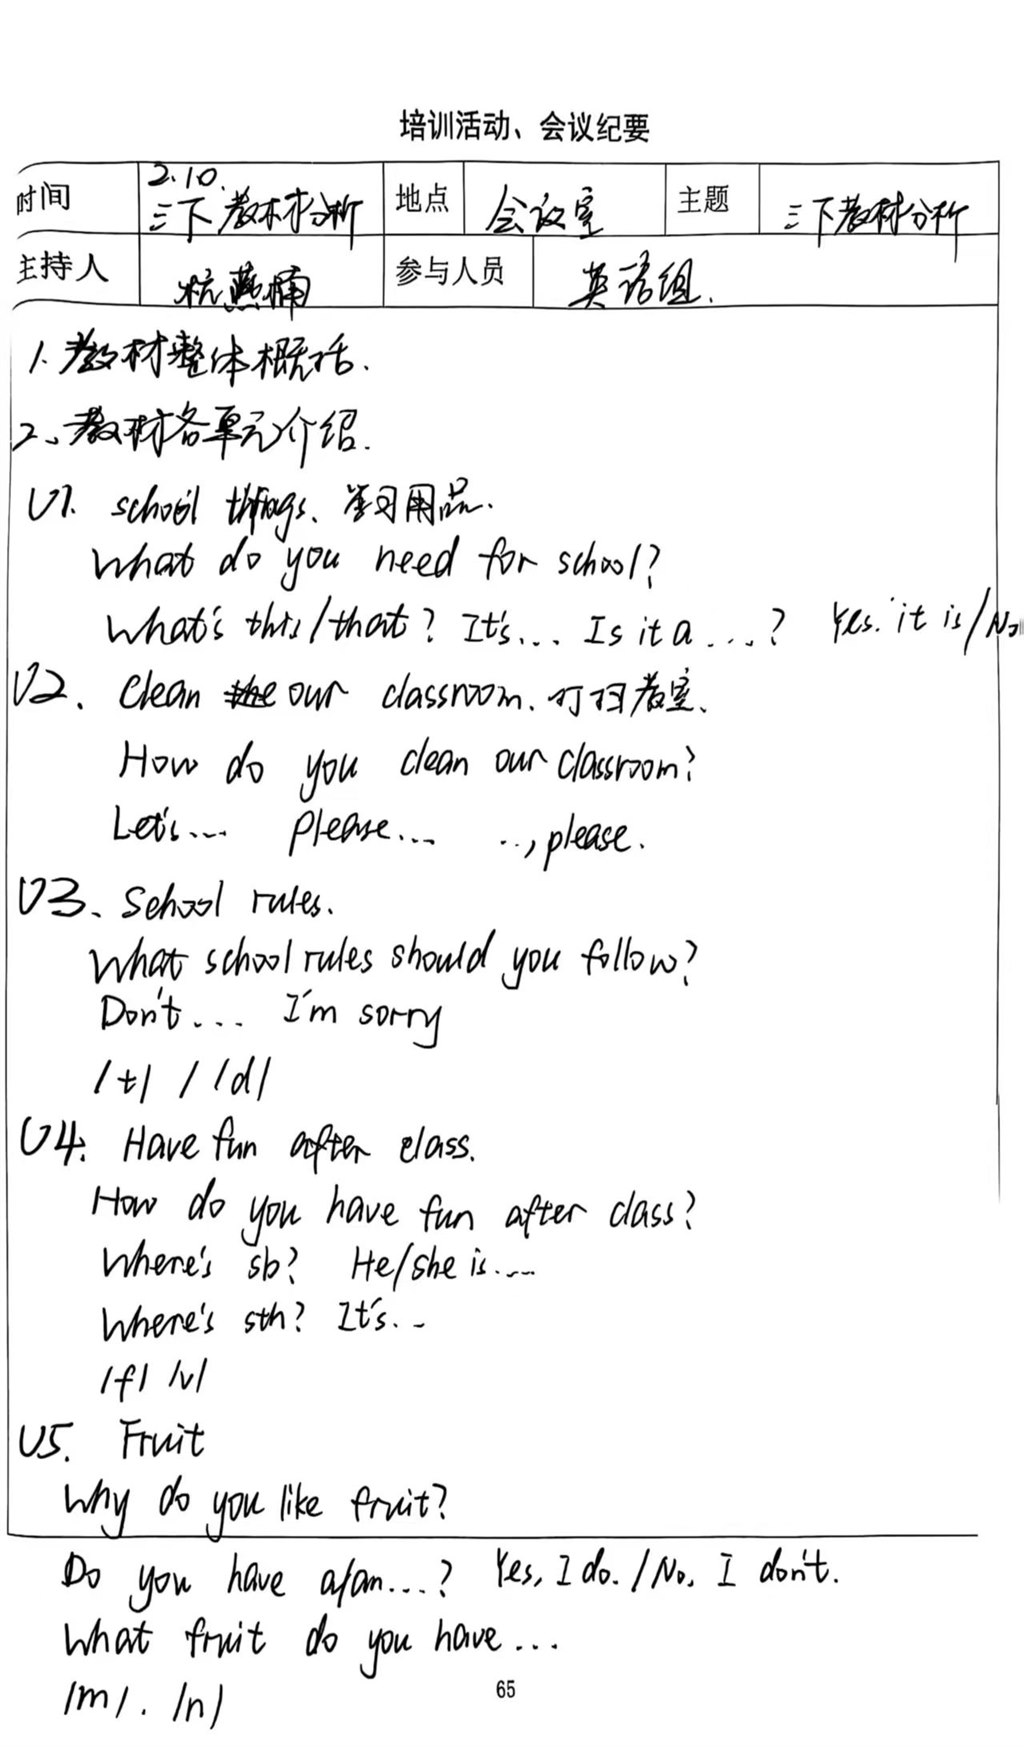 培训活动、会议纪要
时间 2.10. 三下教材分析 地点 会议室 主题 三下教材分析
主持人 杭燕楠 参与人员 英语组.
1. 教材整体概括.
2、教材各单元介绍.
U1. school things. 学习用品.
What do you need for school?
What's this/that? It's... Is it a ...? Yes. it is/No
U2. Clean our classroom. 打扫教室.
How do you clean our classroom?
Let's... Please... ..., please.
U3、School rules.
What school rules should you follow?
Don't... I'm sorry
/t/ / /d/
U4. Have fun after class.
How do you have fun after class?
Where's sb? He/she is...
Where's sth? It's...
/f/ /v/
U5. Fruit
Why do you like fruit?
Do you have a/an...? Yes, I do. / No, I don't.
What fruit do you have...
/m/. /n/
65